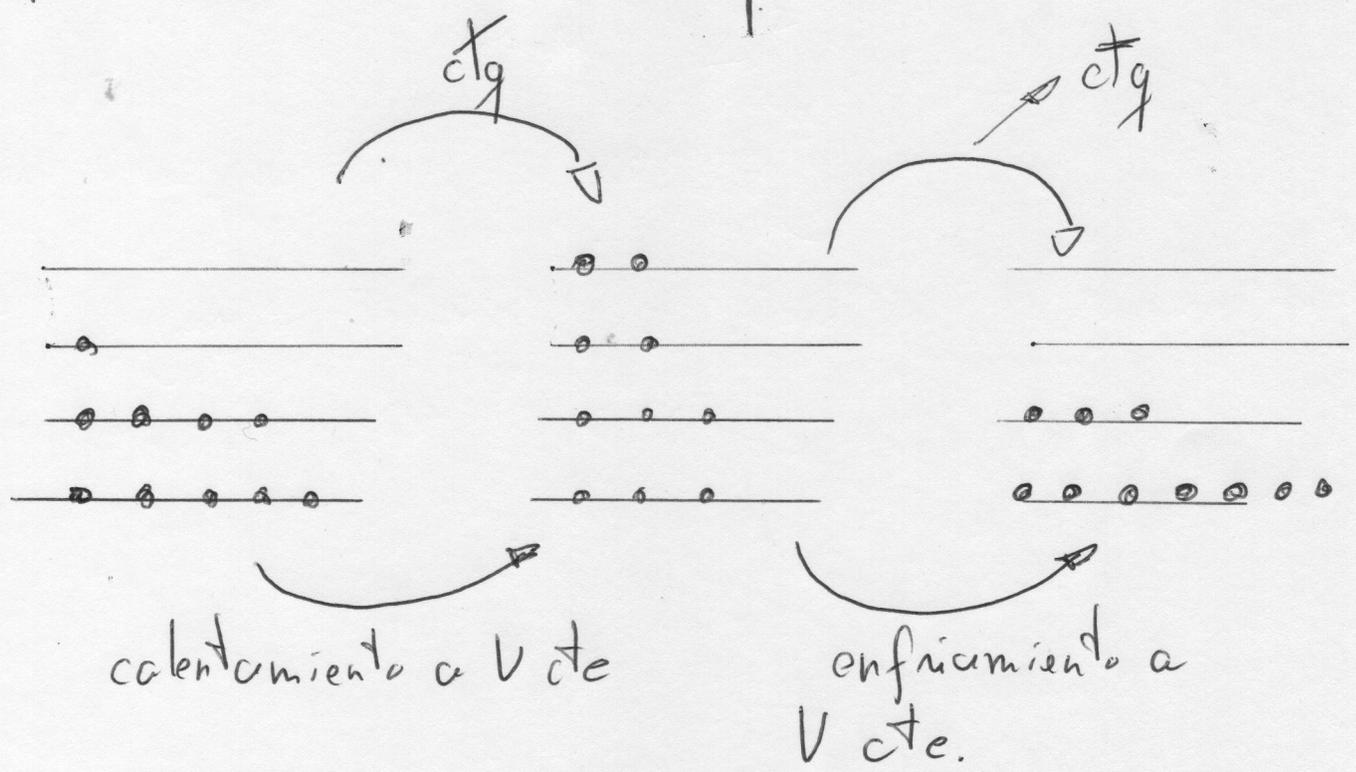 ctq
ctq
calentamiento a V cte
enfriamiento a
V cte.